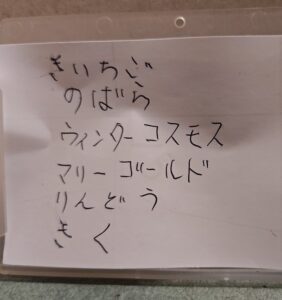 きいちご
のばら
ウィンターコスモス
マリーゴールド
りんどう
きく